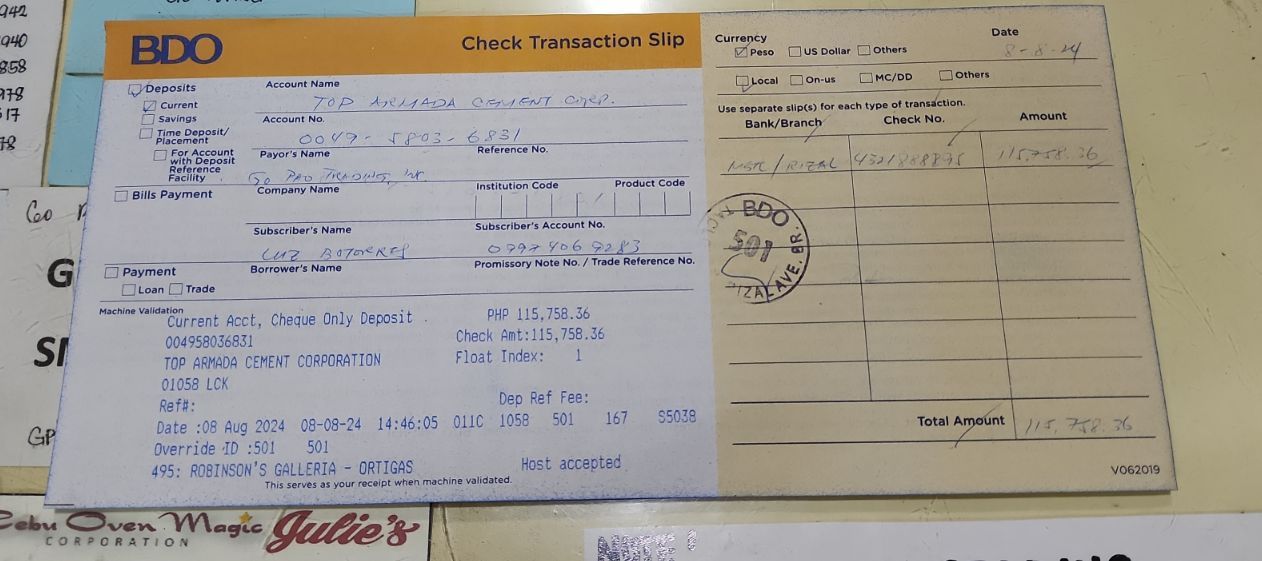 942
940
858
978
517
78
BDO
Check Transaction Slip
Deposits
Current
Savings
Time Deposit/
Placement
For Account
with Deposit
Reference
Facility
Bills Payment
Payment
Loan Trade
Account Name
TOP ARMADA CEMENT CORP.
Account No.
0049-5803-6831
Payor's Name Reference No.
GO PAO TRADING
Company Name Institution Code Product Code
Subscriber's Name Subscriber's Account No.
LUZ 09974069283
Borrower's Name Promissory Note No. / Trade Reference No.
Machine Validation
Current Acct, Cheque Only Deposit PHP 115,758.36
004958036831 Check Amt:115,758.36
TOP ARMADA CEMENT CORPORATION Float Index: 1
01058 LCK
Ref#: Dep Ref Fee:
Date :08 Aug 2024 08-08-24 14:46:05 011C 1058 501 167 S5038
Override ID :501 501
495: ROBINSON'S GALLERIA - ORTIGAS Host accepted
This serves as your receipt when machine validated.
Currency Date
Peso US Dollar Others 8-8-24
Local On-us MC/DD Others
Use separate slip(s) for each type of transaction.
Bank/Branch Check No. Amount
RIZAL 115,758.36
BDO
501
RIZAL AVE. BR.
Total Amount 115,758.36
V062019
Go
G
SI
GP
Cebu Oven Magic
CORPORATION
Julie's
NOTE!